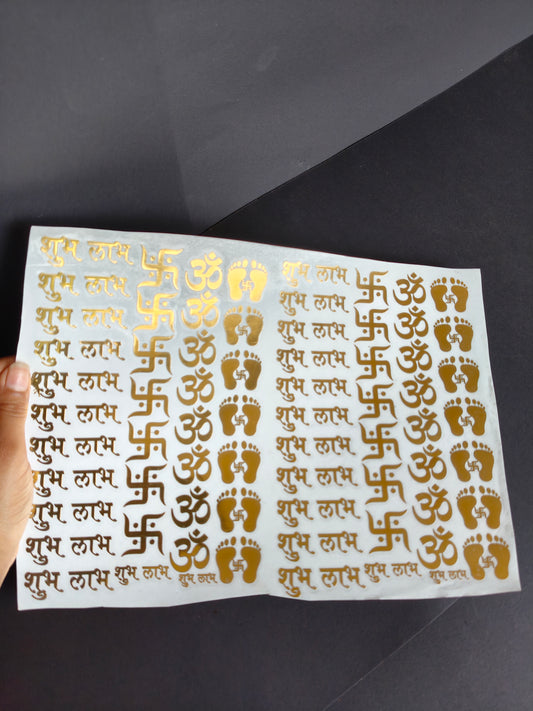 शुभ लाभ
शुभ लाभ
शुभ लाभ
शुभ लाभ
शुभ लाभ
शुभ लाभ
शुभ लाभ
शुभ लाभ
शुभ लाभ
शुभ लाभ
शुभ लाभ शुभ लाभ शुभ लाभ
ॐ
ॐ
ॐ
ॐ
ॐ
ॐ
ॐ
ॐ
शुभ लाभ
शुभ लाभ
शुभ लाभ
शुभ लाभ
शुभ लाभ
शुभ लाभ
शुभ लाभ
शुभ लाभ
शुभ लाभ
शुभ लाभ
शुभ लाभ शुभ लाभ शुभ लाभ
ॐ
ॐ
ॐ
ॐ
ॐ
ॐ
ॐ
ॐ